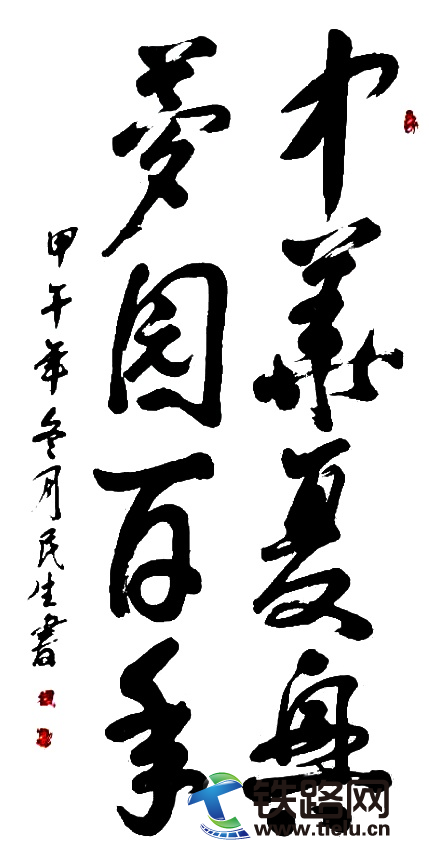 中華复興
夢圓百年
甲午年冬月民生書
铁路网
www.tielu.cn